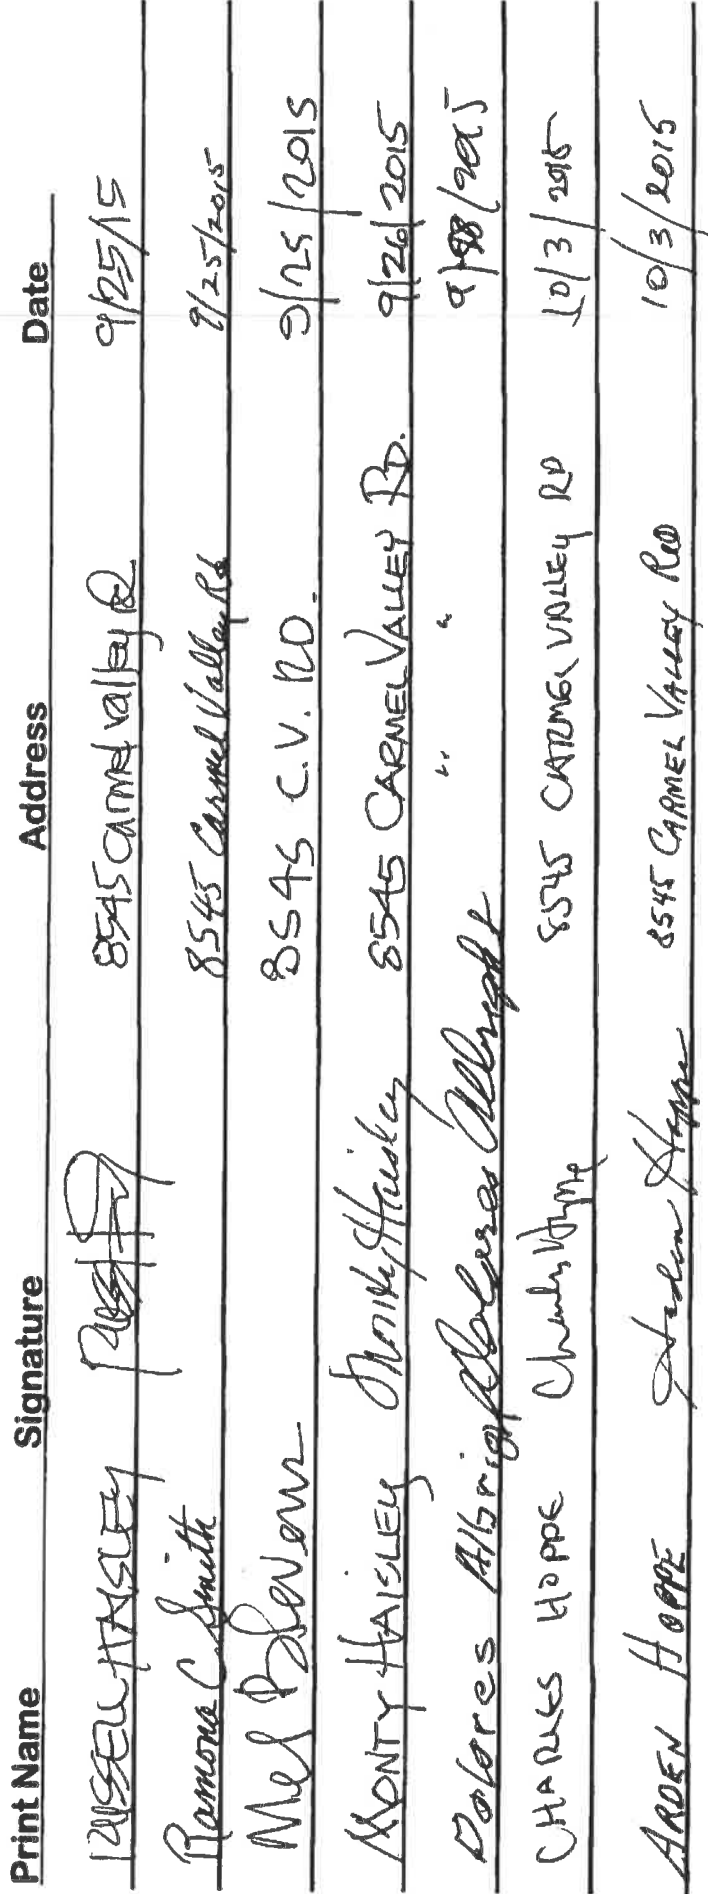 Print Name Signature Address Date
RUSSELL HAISLEY 8545 Carmel Valley Rd 9/25/15
Ramona C. Smith 8545 Carmel Valley Rd 9/25/2015
Mel Blevens 8545 C.V. RD. 9/25/2015
MONTY HAISLEY Monty Haisley 8545 CARMEL VALLEY RD. 9/26/2015
Dolores Albright Dolores Albright " " 9/28/2015
CHARLES HOPPE Charles Hoppe 8545 CARMEL VALLEY RD 10/3/2015
ARDEN HOPPE Arden Hoppe 8545 CARMEL VALLEY ROAD 10/3/2015